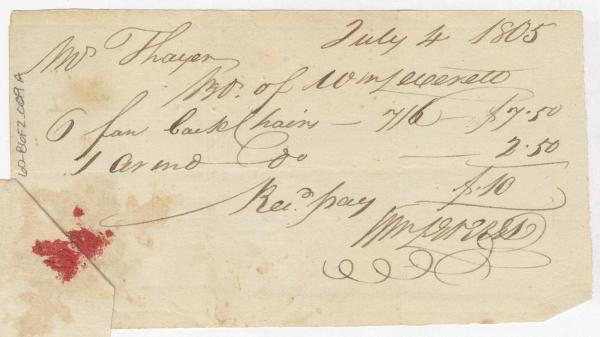 July 4 1805
Mr Thayer
Bot. of Wm Leverett
6 fan back Chairs — 7/6 $7.50
1 armd Do — 2.50
$.10
Recd. pay
Wm Leverett